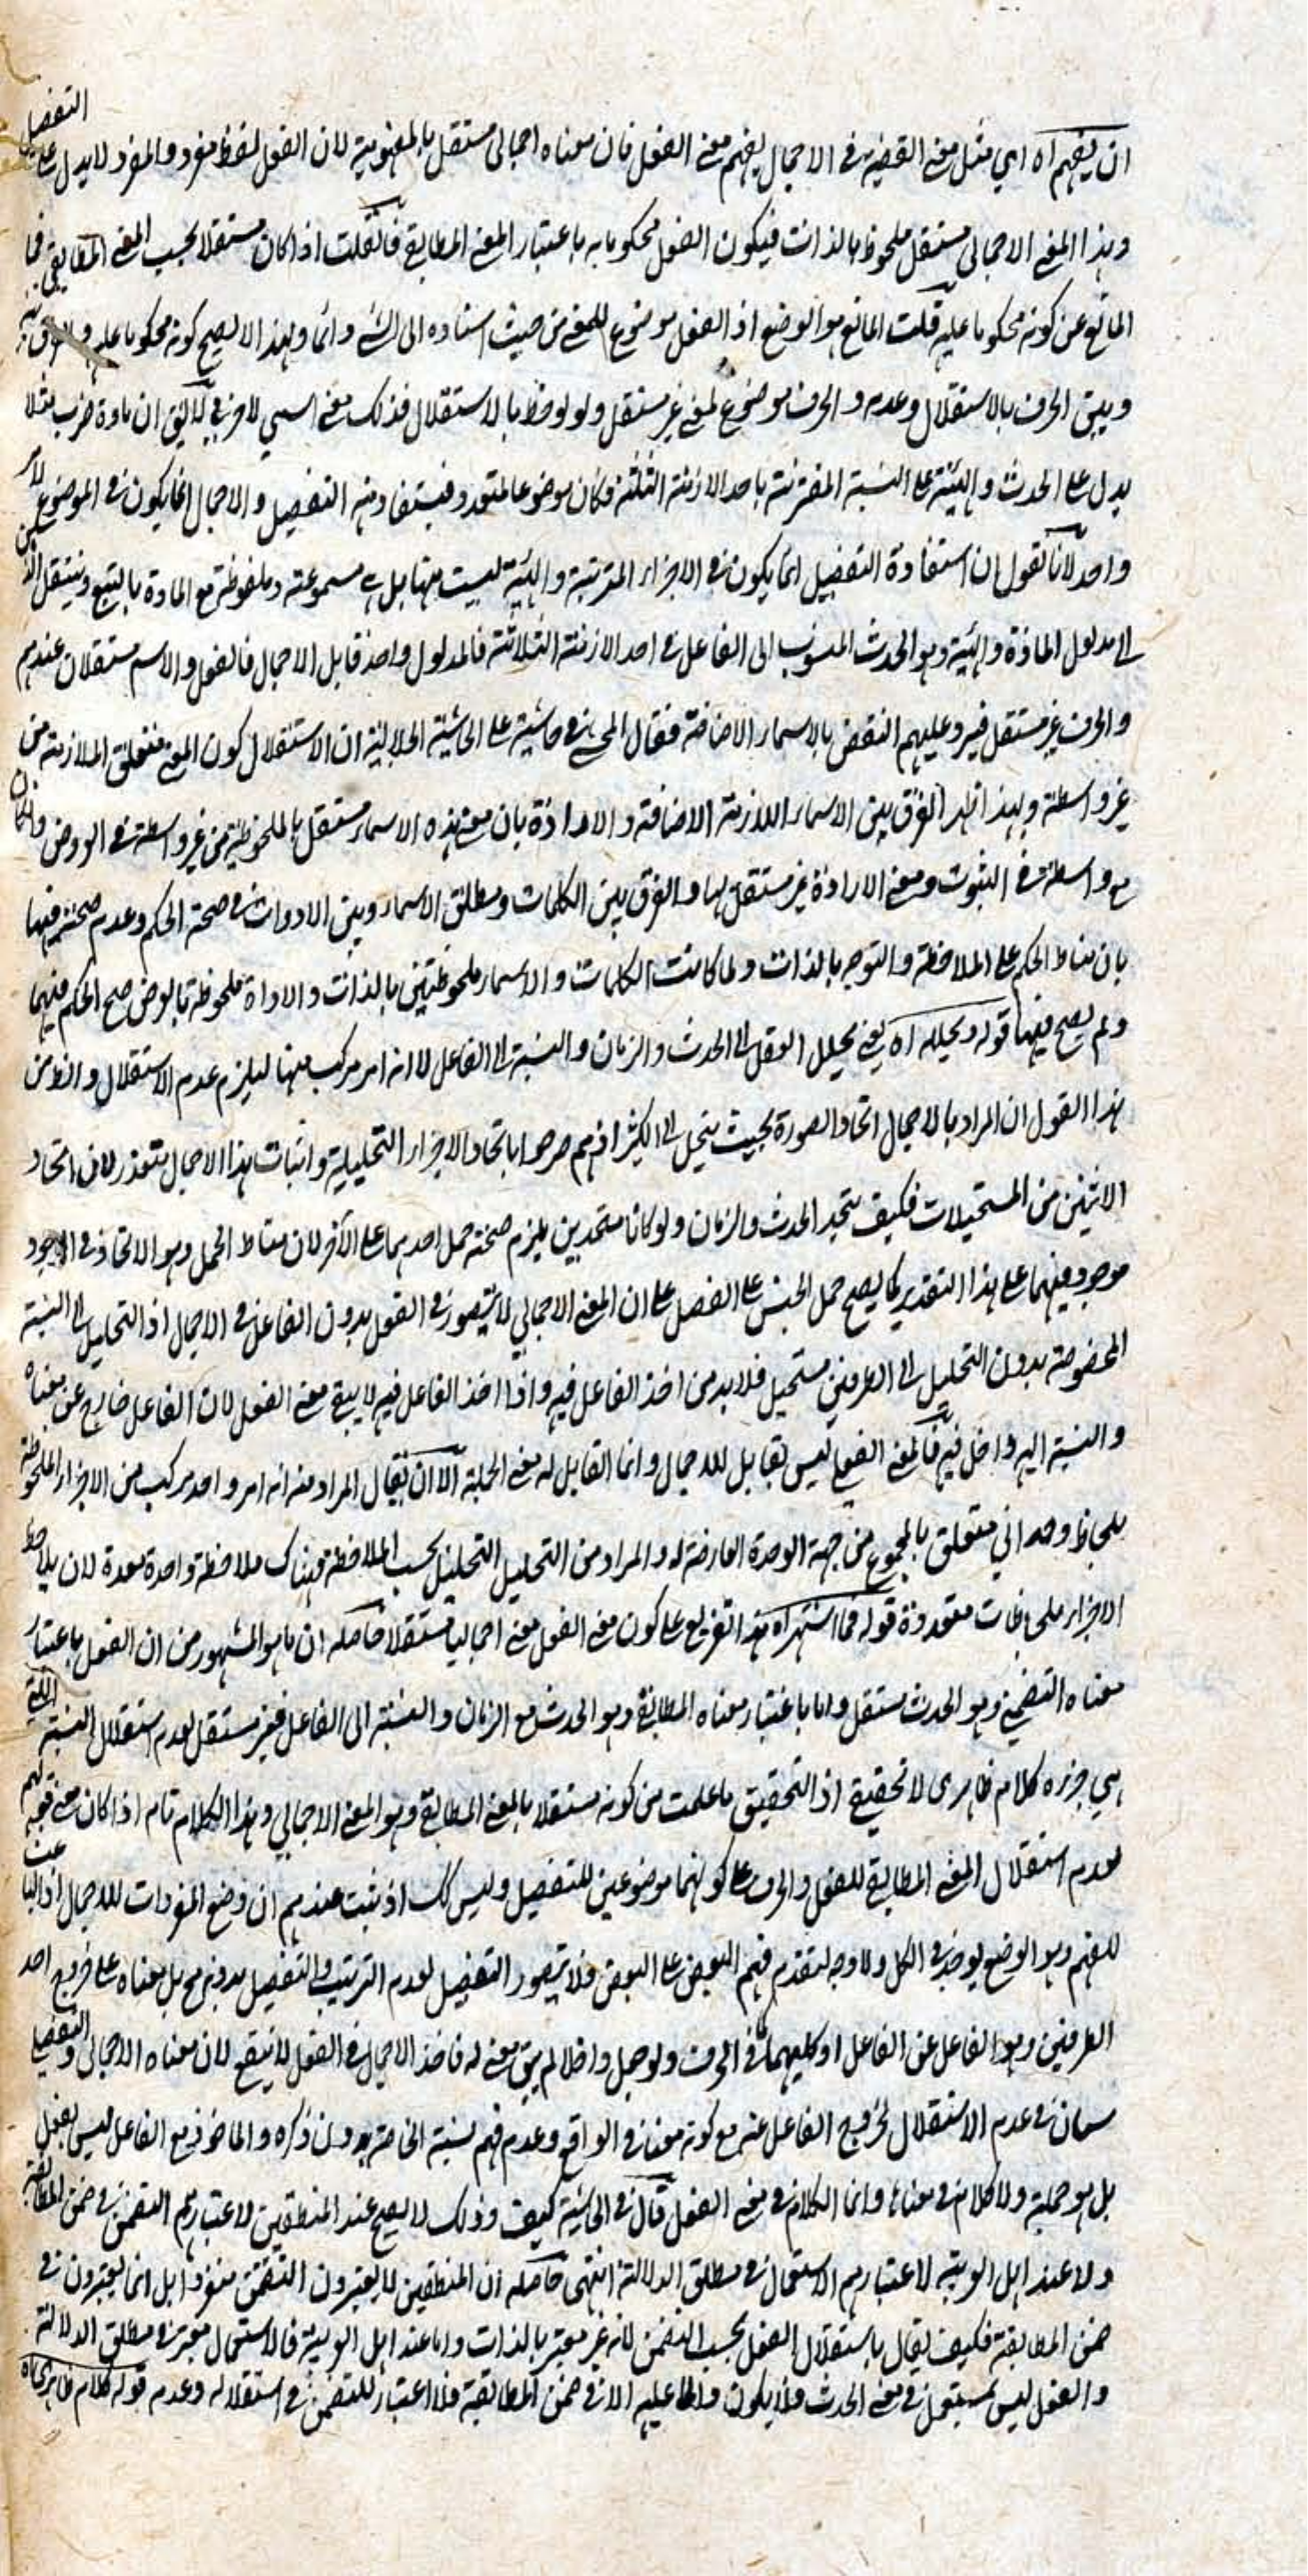 ان يفهم اه اي مثل معنى القضية في الاجمال يفهم معنى الفعل فان معناه اجمالي مستقل بالمفهومية لان الفعل لفظ مفرد والمفرد لا يدل على التفصيل
وهذا المعنى الاجمالي مستقل ملحوظ بالذات فيكون الفعل محكوما به باعتبار المعنى المطابقي فان قلت اذا كان مستقلا بحسب المعنى المطابقي فما
المانع عن كونه محكوما عليه قلت المانع هو الوضع اذ الفعل موضوع للمعنى من حيث اسناده الى الشئ دائما ولهذا لا يصح كونه محكوما عليه
وبين الحرف بالاستقلال وعدمه والحرف موضوع لمعنى غير مستقل ولو لوحظ بالاستقلال فذلك معنى اسمي لا حرفي لا يقال ان مادة ضرب مثلا
يدل على الحدث والهيئة على النسبة المقترنة باحد الازمنة الثلثة فكان موضوعا لمتعدد فيستفاد منه التفصيل والاجمال انما يكون في الموضوع لامر
واحد لانا نقول ان استفادة التفصيل انما يكون في الاجزاء المترتبة والهيئة ليست منها بل هي مسموعة وملفوظة مع المادة بالتبع وينتقل الذهن
الى مدلول المادة والهيئة وهو الحدث المنسوب الى الفاعل في احد الازمنة الثلاثة فالمدلول واحد قابل الاجمال فالفعل والاسم مستقلان عندهم
والحرف غير مستقل فيرد عليهم النقض بالاسماء الاضافة فقال المحشي في حاشيته على الحاشية الجلالية ان الاستقلال كون المعنى متعلق الملازمة من
غير واسطة وبهذا ظهر الفرق بين الاسماء اللازمة الاضافة والاداة بان معنى هذه الاسماء مستقل بالملحوظية من غير واسطة في العروض وان كان
مع واسطة في الثبوت ومعنى الاداة غير مستقل بها والفرق بين الكلمات ومطلق الاسماء وبين الادوات في صحة الحكم وعدم صحته فيها
بان مناط الحكم على الملاحظة والتوجه بالذات ولما كانت الكلمات والاسماء ملحوظتين بالذات والاداة ملحوظة بالعرض صح الحكم فيهما
ولم يصح فيها قوله وتحليله اه يعني تحليل العقل الى الحدث والزمان والنسبة الى الفاعل لا انه امر مركب منها ليلزم عدم الاستقلال والظاهر من
هذا القول ان المراد بالاجمال اتحاد الصورة بحيث ينحل الى الكثير اذ هم صرحوا باتحاد الاجزاء التحليلية واثبات هذا الاجمال متعذر لان اتحاد
الاثنين من المستحيلات فكيف يتحد الحدث والزمان ولو كانا متحدين يلزم صحة حمل احدهما على الآخر لان مناط الحمل وهو الاتحاد في الوجود
موجود فيهما على هذا التقدير كما يصح حمل الجنس على الفصل على ان المعنى الاجمالي لا يتصور في الفعل بدون الفاعل في الاجمال اذ التحليل الى النسبة
المخصوصة بدون التحليل الى الطرفين مستحيل فلا بد من اخذ الفاعل فيه واذا اخذ الفاعل فيه لا يبقى معنى الفعل لان الفاعل خارج عن معناه
والنسبة اليه داخل فيه فالمعنى الفعلي ليس بقابل للاجمال وانما القابل له معنى الجملة الا ان يقال المراد منه انه امر واحد مركب من الاجزاء الملحوظة
بلحاظ وحداني متعلق بالمجموع من جهة الوحدة العارضة له والمراد من التحليل التحليل بحسب الملاحظة فهناك ملاحظة واحدة معدة لان يلاحظ
الاجزاء ملحاظات متعددة قوله فما اشتهر اه هذا تفريع على كون معنى الفعل معنى اجماليا مستقلا حاصله ان ما هو المشهور من ان الفعل باعتبار
معناه التضمني وهو الحدث مستقل واما باعتبار معناه المطابقي وهو الحدث مع الزمان والنسبة الى الفاعل فغير مستقل لعدم استقلال النسبة التي
هي جزءه كلام ظاهري لا تحقيقي اذ التحقيق ما علمت من كونه مستقلا بالمعنى المطابقي وهو المعنى الاجمالي وهذا الكلام تام اذا كان معنى قولهم
بعدم استقلال المعنى المطابقي للفعل والحرف على كونهما موضوعين للتفصيل وليس كك اذ ثبت عندهم ان وضع المفردات للاجمال اذ الباعث
للفهم وهو الوضع يوجد في الكل ولا وجه لتقدم فهم البعض على البعض فلا يتصور التفصيل لعدم الترتيب والتفصيل بدونه مح بل معناه على خروج احد
الطرفين وهو الفاعل عن الفاعل او كليهما كما في الحرف ولو جعل داخلا لم يبق معنى له فاخذ الاجمال في الفعل لا ينفع لان معناه الاجمالي والتفصيلي
سيان في عدم الاستقلال لخروج الفاعل عنه مع كونه مضافا في الواقع وعدم فهم نسبته الخاصة بدون ذكره والماخوذ مع الفاعل ليس بفعل
بل هو جملة ولا كلام في معناه وانما الكلام في معنى الفعل قال في الحاشية كيف وذلك لا يصح عند المنطقيين لاعتبارهم التضمن في ضمن المطابقة
ولا عند اهل العربية لاعتبارهم الاستعمال في مطلق الدلالة انتهى حاصله ان المنطقيين لا يعتبرون التضمن منفردا بل انما يعتبرون في
ضمن المطابقة فكيف يقال باستقلال الفعل بحسب التضمن لانه غير معتبر بالذات واما عند اهل العربية فالاستعمال معتبر في مطلق الدلالة
والفعل ليس بمستعمل في معنى الحدث فلا يكون دالا عليه الا في ضمن المطابقة فلا اعتبار للتضمن في استقلاله وعدمه قوله كلام ظاهري اه